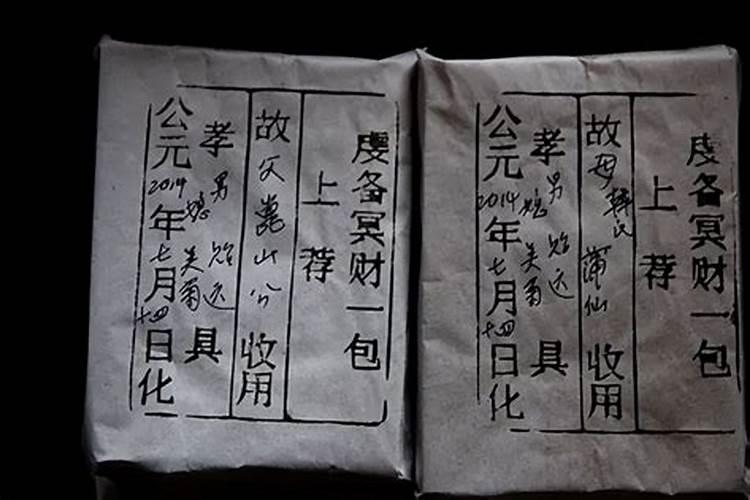 虔备冥财一包
上荐
故父山公收用
孝男贻远具
媳美菊
公元2014年七月十四日化
虔备冥财一包
上荐
故母韩氏蒲仙收用
孝男贻远具
媳美菊
公元2014年七月十四日化